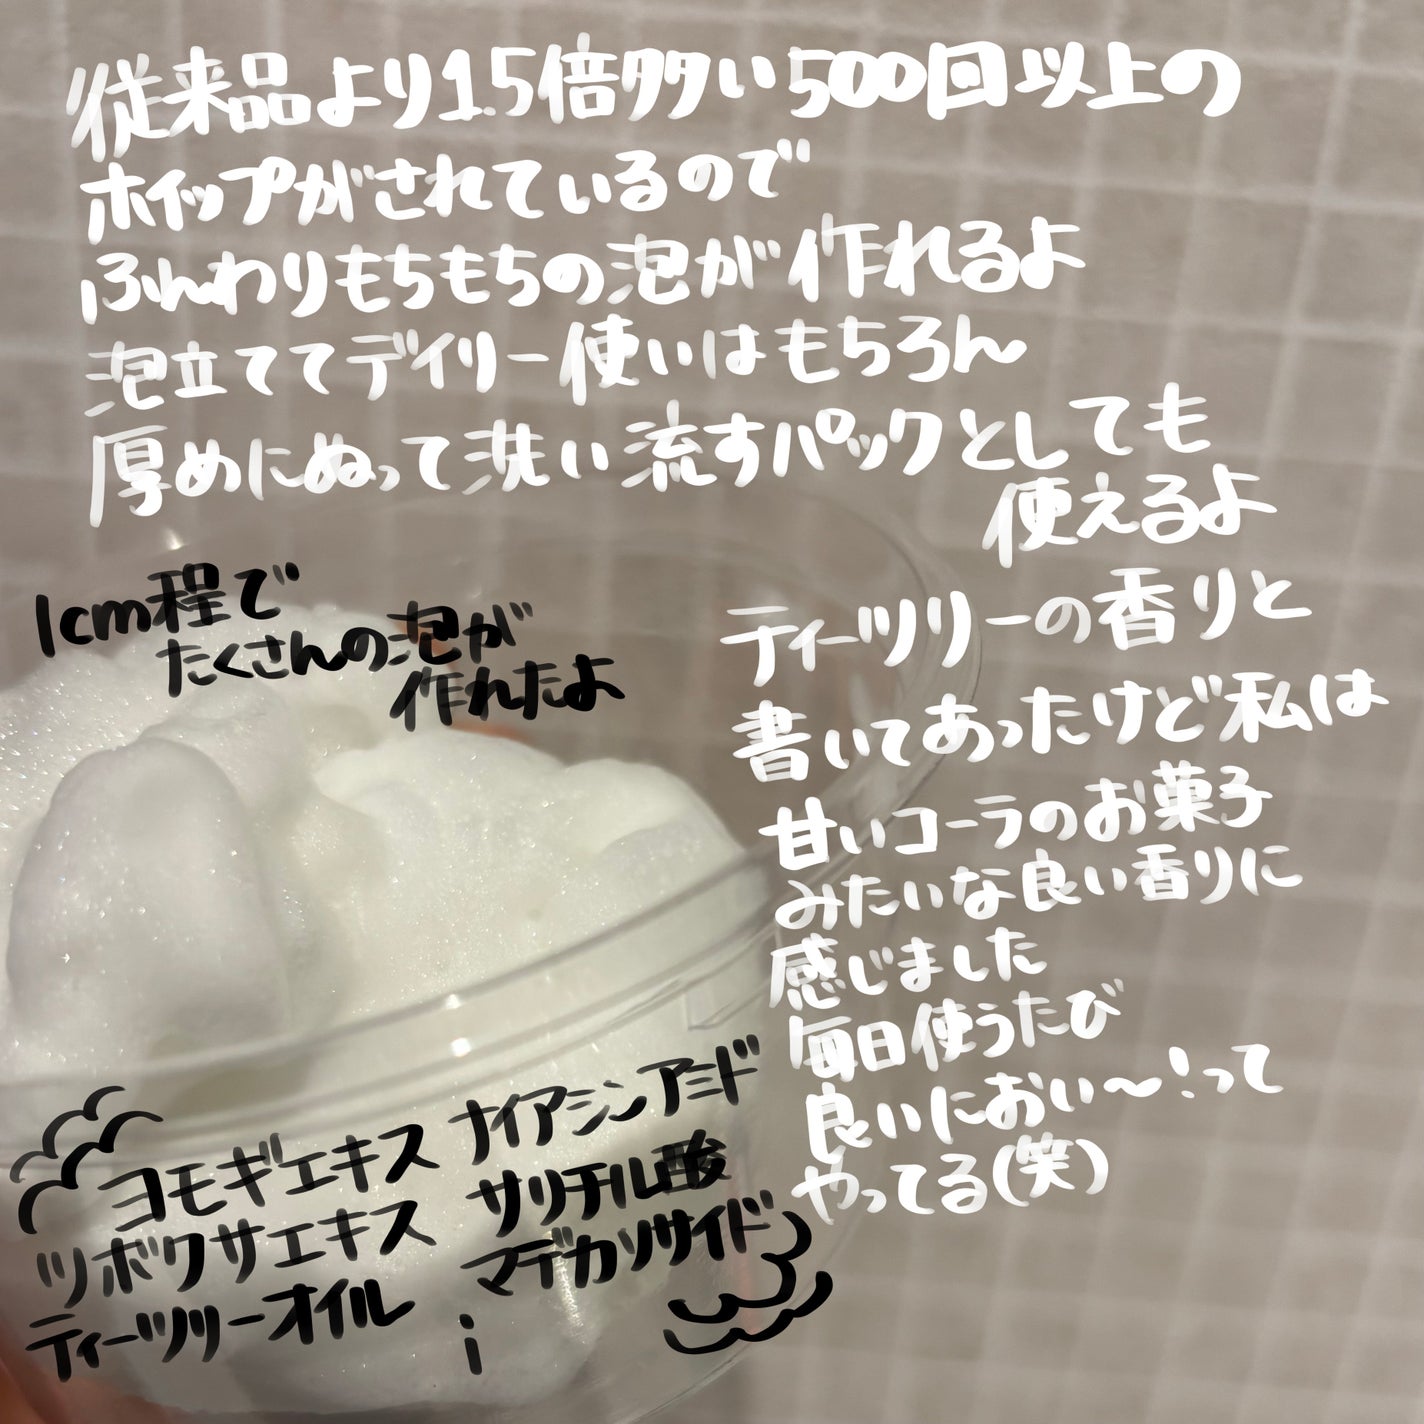 従来品より1.5倍多い500回以上の
ホイップがされているので
ふんわりもちもちの泡が作れるよ
泡立ててデイリー使いはもちろん
厚めにぬって洗い流すパックとしても
使えるよ
1cm程で
たくさんの泡が
作れたよ
ティーツリーの香りと
書いてあったけど私は
甘いコーラのお菓子
みたいな良い香りに
感じました
毎日使うたび
良いにおい〜!って
やってる(笑)
ヨモギエキス
ツボクサエキス
ティーツリーオイル
ナイアシンアミド
サリチル酸
マデカソサイド